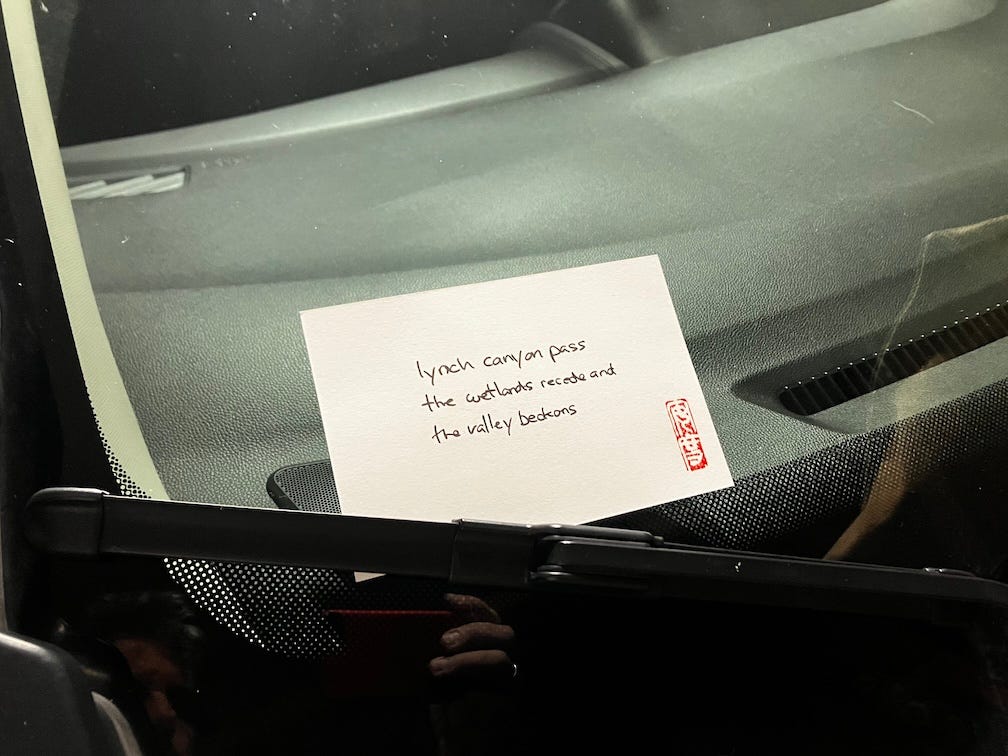 lynch canyon pass
the wetlands recede and
the valley beckons